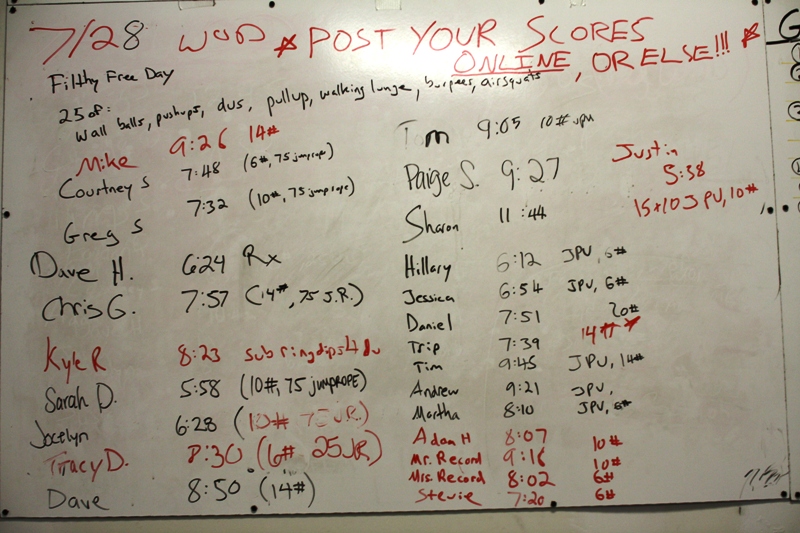 7/28 WOD * POST YOUR SCORES
ONLINE, OR ELSE!!! *
Filthy Free Day
25 of:
Wall balls, pushups, dus, pullup, walking lunge, burpees, airsquats
Mike 9:26 14#
Courtney S 7:48 (6#, 75 jumprope)
Greg S 7:32 (10#, 75 jumprope)
Dave H. 6:24 Rx
Chris G. 7:57 (14#, 75 J.R.)
Kyle R 8:23 sub ringdips 4 du
Sarah D. 5:58 (10#, 75 jumpROPE)
Jocelyn 6:28 (10# 75 J.R.)
Tracy D. 8:30 (6# 25 JR)
Dave 8:50 (14#)
Tom 9:05 10# jpu
Paige S. 9:27
Sharon 11:44
Hillary 6:12 JPU, 6#
Jessica 6:54 JPU, 6#
Daniel 7:51 20#
Trip 7:39 14# *
Tim 9:45 JPU, 14#
Andrew 9:21 JPU,
Martha 8:10 JPU, 6#
Adam H 8:07 10#
Mr. Record 9:16 10#
Mrs. Record 8:02 6#
Stevie 7:20 6#
Justin
5:38
15+10 JPU, 10#
G